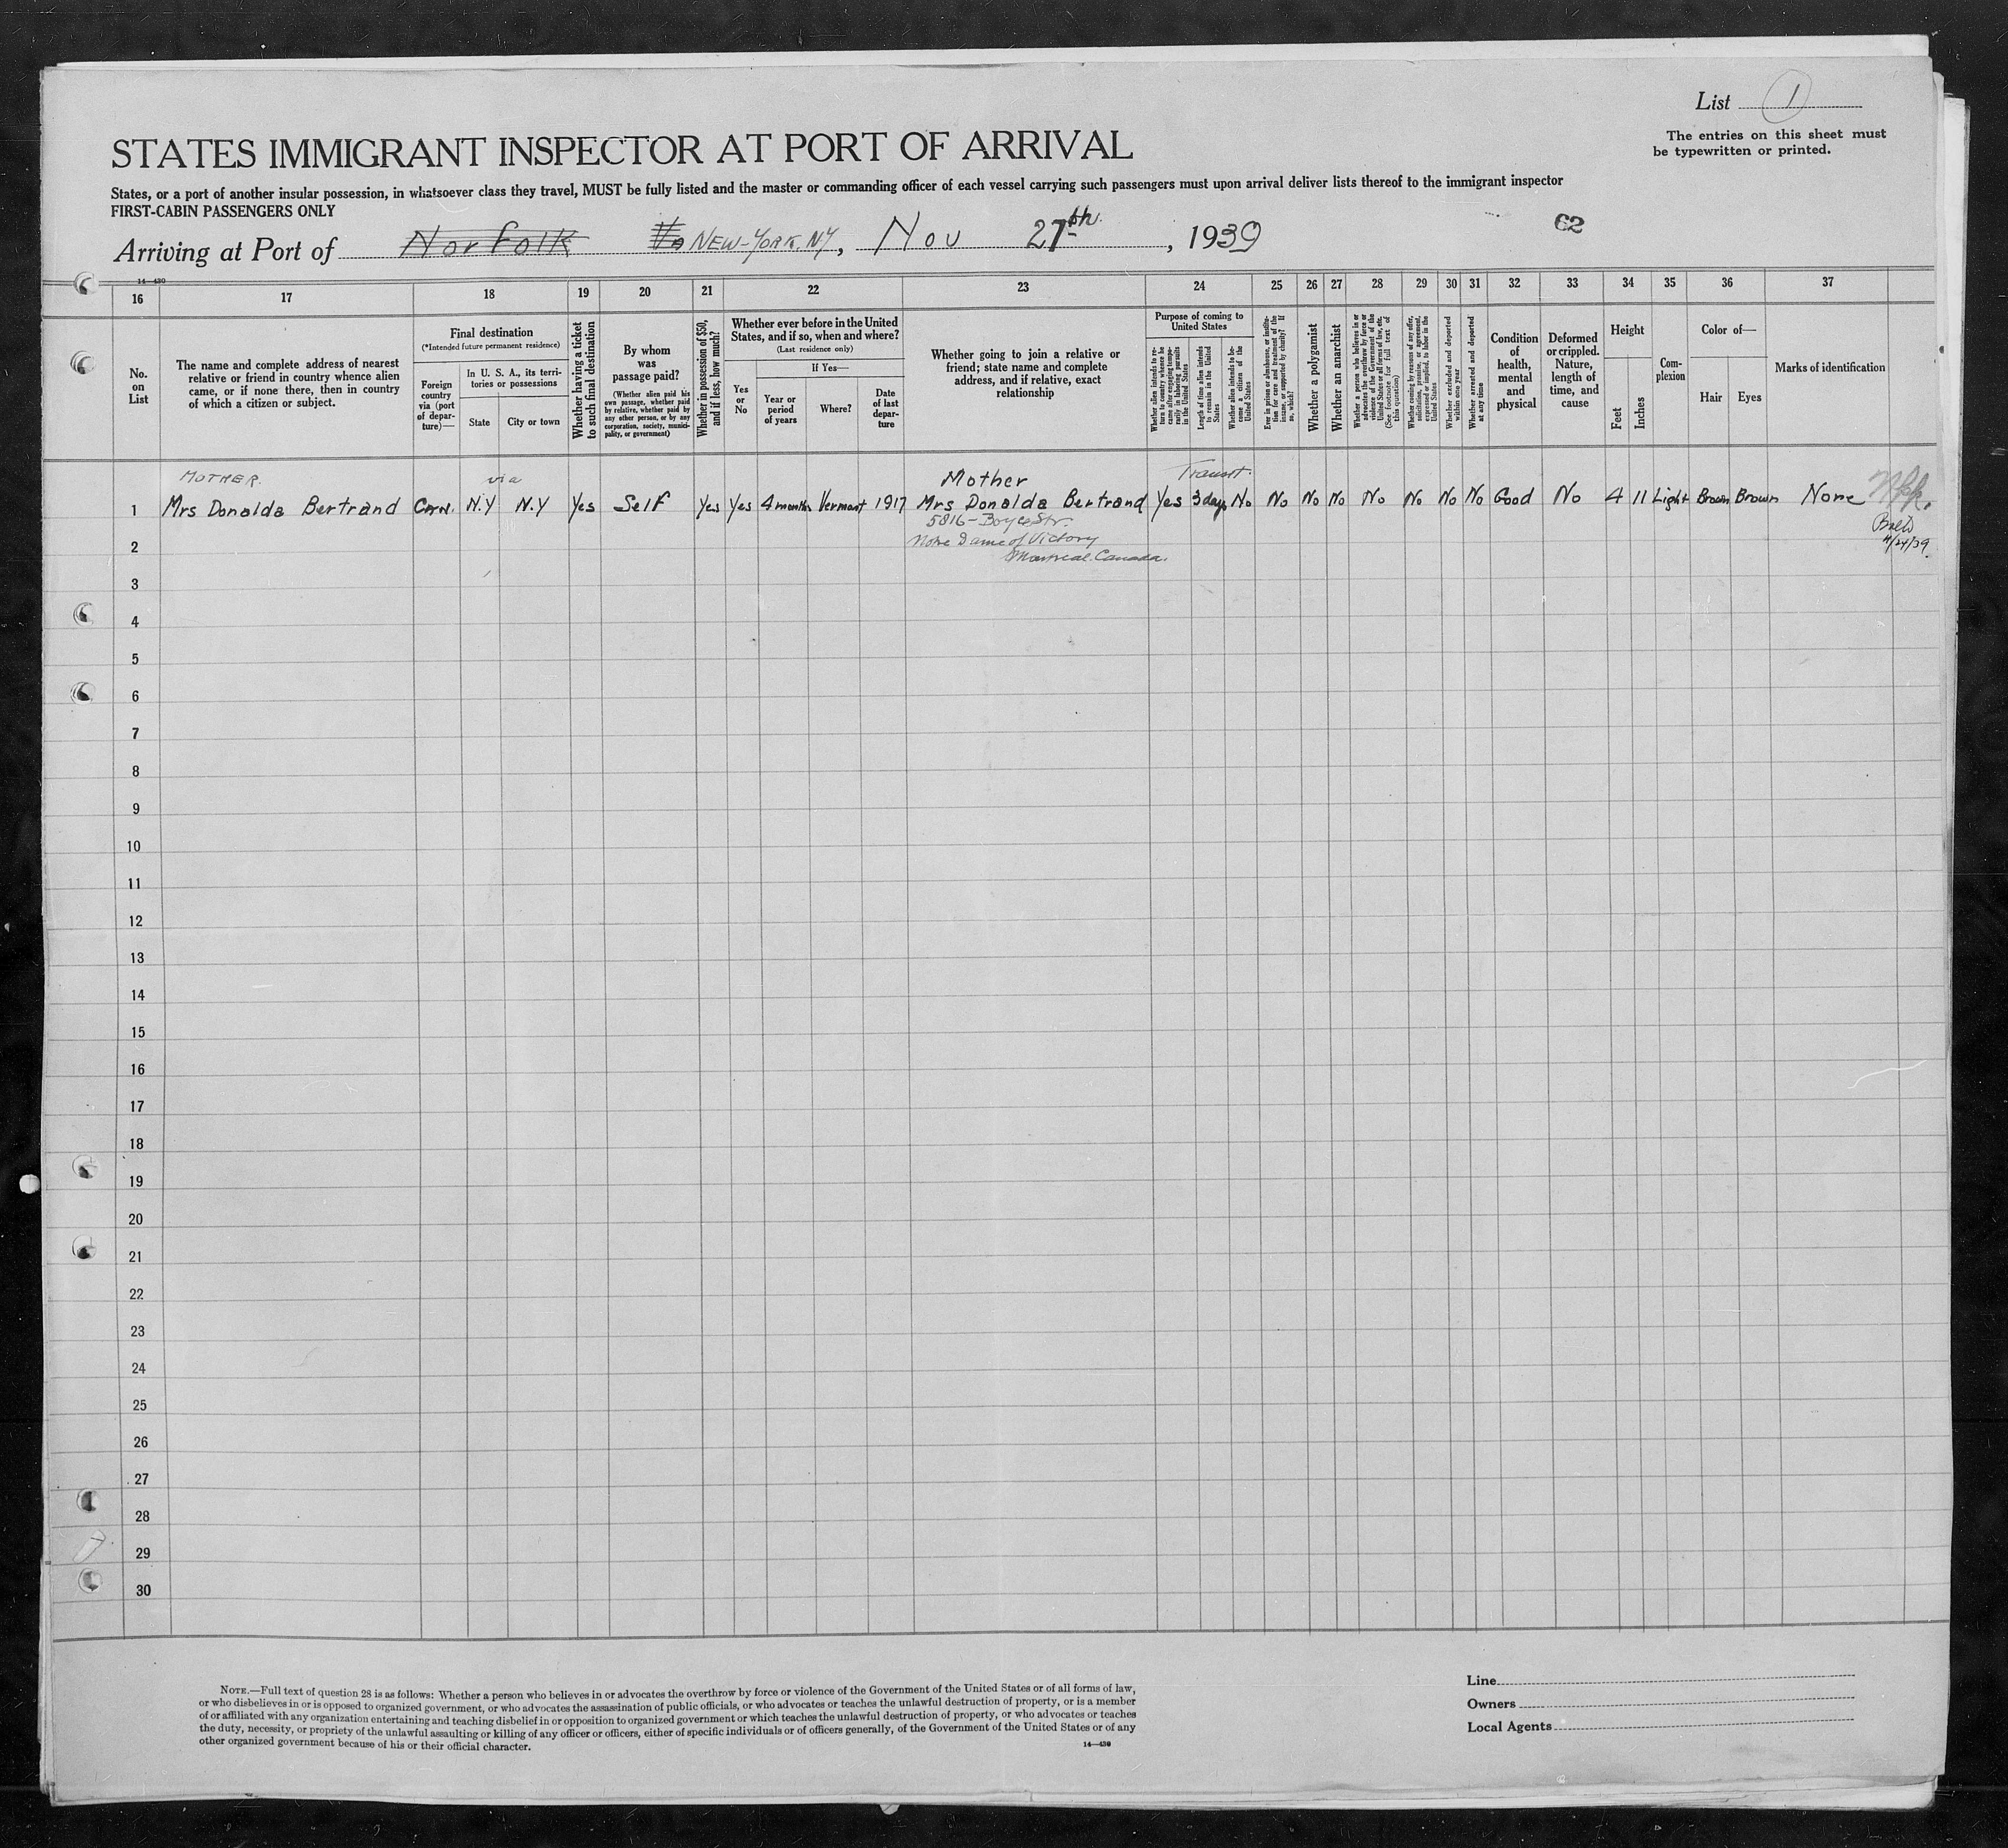 List 1
The entries on this sheet must
be typewritten or printed.
STATES IMMIGRANT INSPECTOR AT PORT OF ARRIVAL
States, or a port of another insular possession, in whatsoever class they travel, MUST be fully listed and the master or commanding officer of each vessel carrying such passengers must upon arrival deliver lists thereof to the immigrant inspector
FIRST-CABIN PASSENGERS ONLY
62
Arriving at Port of Norfolk Va NEW-YORK. NY, Nov 27th, 1939
14—430
16 17 18 19 20 21 22 23 24 25 26 27 28 29 30 31 32 33 34 35 36 37
No.
on
List
The name and complete address of nearest
relative or friend in country whence alien
came, or if none there, then in country
of which a citizen or subject.
Final destination
(*Intended future permanent residence)
Foreign
country
via (port
of depar-
ture)—
In U. S. A., its terri-
tories or possessions
State
City or town
Whether having a ticket
to such final destination
By whom
was
passage paid?
(Whether alien paid his
own passage, whether paid
by relative, whether paid by
any other person, or by any
corporation, society, munici-
pality, or government)
Whether in possession of $50,
and if less, how much?
Whether ever before in the United
States, and if so, when and where?
(Last residence only)
If Yes—
Yes
or
No
Year or
period
of years
Where?
Date
of last
depar-
ture
Whether going to join a relative or
friend; state name and complete
address, and if relative, exact
relationship
Purpose of coming to
United States
Whether alien intends to re-
turn to country whence he
came after engaging tempo-
rarily in laboring pursuits
in the United States
Length of time alien intends
to remain in the United
States
Whether alien intends to be-
come a citizen of the
United States
Ever in prison or almshouse, or institu-
tion for care and treatment of the
insane, or supported by charity? If
so, which?
Whether a polygamist
Whether an anarchist
Whether a person who believes in or
advocates the overthrow by force or
violence of the Government of the
United States or all forms of law, etc.
(See footnote for full text of
this question)
Whether coming by reasons of any offer,
solicitation, promise, or agreement,
expressed or implied, to labor in the
United States
Whether excluded and deported
within one year
Whether arrested and deported
at any time
Condition
of
health,
mental
and
physical
Deformed
or crippled.
Nature,
length of
time, and
cause
Height
Feet
Inches
Com-
plexion
Color of—
Hair
Eyes
Marks of identification
MOTHER. via Mother Transit.
1 Mrs Donalda Bertrand N.Y N.Y Yes Self Yes Yes 4 months Vermont 1917 Mrs Donalda Bertrand Yes 3 days No No No No No No No No Good No 4 11 Light Brown Brown None
5816 - Boyce Str.
Notre Dame of Victory
Montreal. Canada.
Balto
11/24/39.
2
3
4
5
6
7
8
9
10
11
12
13
14
15
16
17
18
19
20
21
22
23
24
25
26
27
28
29
30
NOTE.—Full text of question 28 is as follows: Whether a person who believes in or advocates the overthrow by force or violence of the Government of the United States or of all forms of law,
or who disbelieves in or is opposed to organized government, or who advocates the assassination of public officials, or who advocates or teaches the unlawful destruction of property, or is a member
of or affiliated with any organization entertaining and teaching disbelief in or opposition to organized government or which teaches the unlawful destruction of property, or who advocates or teaches
the duty, necessity, or propriety of the unlawful assaulting or killing of any officer or officers, either of specific individuals or of officers generally, of the Government of the United States or of any
other organized government because of his or their official character.
14—430
Line
Owners
Local Agents